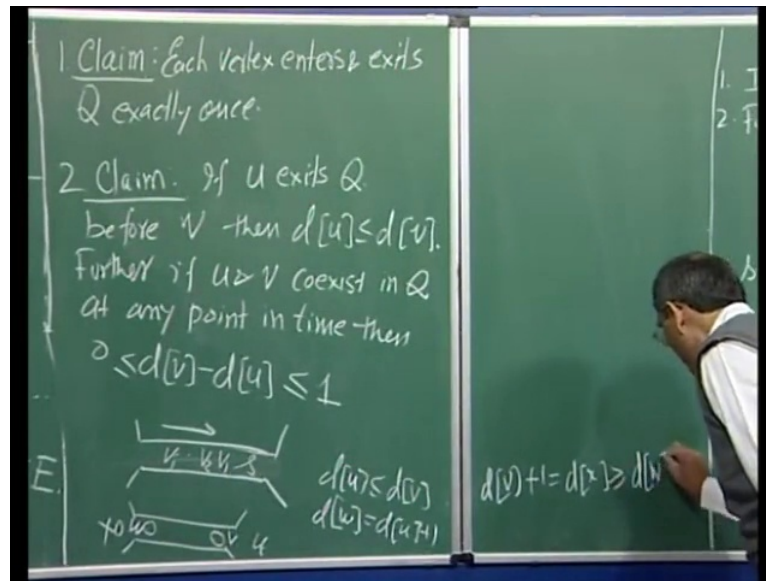 1 Claim: Each vertex enters & exits
Q exactly once.
2 Claim. If u exits Q
before V then d[u] ≤ d[v].
Further if u & v coexist in Q
at any point in time then
0 ≤ d[v] - d[u] ≤ 1
d[u] ≤ d[v]
d[w] = d[u]+1
u
E.
d[v]+1 = d[x] ≥ d[w
1. I
2. F